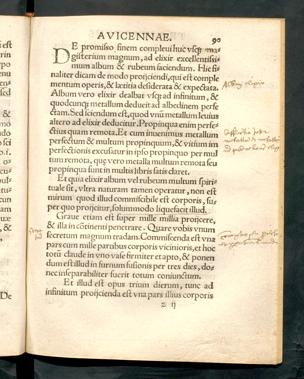 AVICENNAE.
90
DE promisso finem compleui huc vsq; ma-
gisterium magnum, ad elixir excellentissi-
mum album & rubeum faciendum. Hic fi-
naliter dicam de modo proijciendi, qui est comple
mentum operis, & lætitia desiderata & expectata.
Album vero elixir dealbat vsq; ad infinitum, &
quodcunq; metallum deducit ad albedinem perfe
ctam. Sed sciendum est, quod vnū metallum leuius
altero ad elixir deducitur. Propinqua enim perfe-
ctius quam remota. Et cum inuenimus metallum
perfectū & multum propinquum, & vitium im
perfectionis excusatur in ipso propinquo per mul
tum remota, que vero metalla multum remota seu
propinqua sunt in multis libris satis claret.
Et quia elixir album vel rubeum multum spiri-
tuale sit, vltra naturam tamen operatur, non est
mirum quod illud commiscibile est corporis, su-
per quo proijcitur, solummodo liquefacit illud.
Graue etiam est super mille millia proijcere,
& illa in cōtinenti penetrare. Quare vobis vnum
secretum magnum tradam. Commiscenda est vna
pars cum mille paribus corporis vicinioris, et hoc
totū claude in vno vase firmiter et apto, & ponen
dum est illud in furnum fusionis per tres dies, do-
nec inseparabiliter fuerit totum coniunctum.
Et illud est opus trium dierum, tunc ad
infinitum proijcienda est vna pars illius corporis
z ij